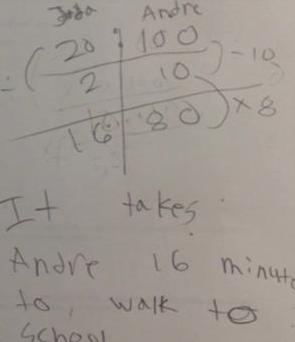 Jada Andre
20 100
÷ ( 2 10 ) -10
16 80 ) × 8
It takes
Andre 16 minute
to walk to
school